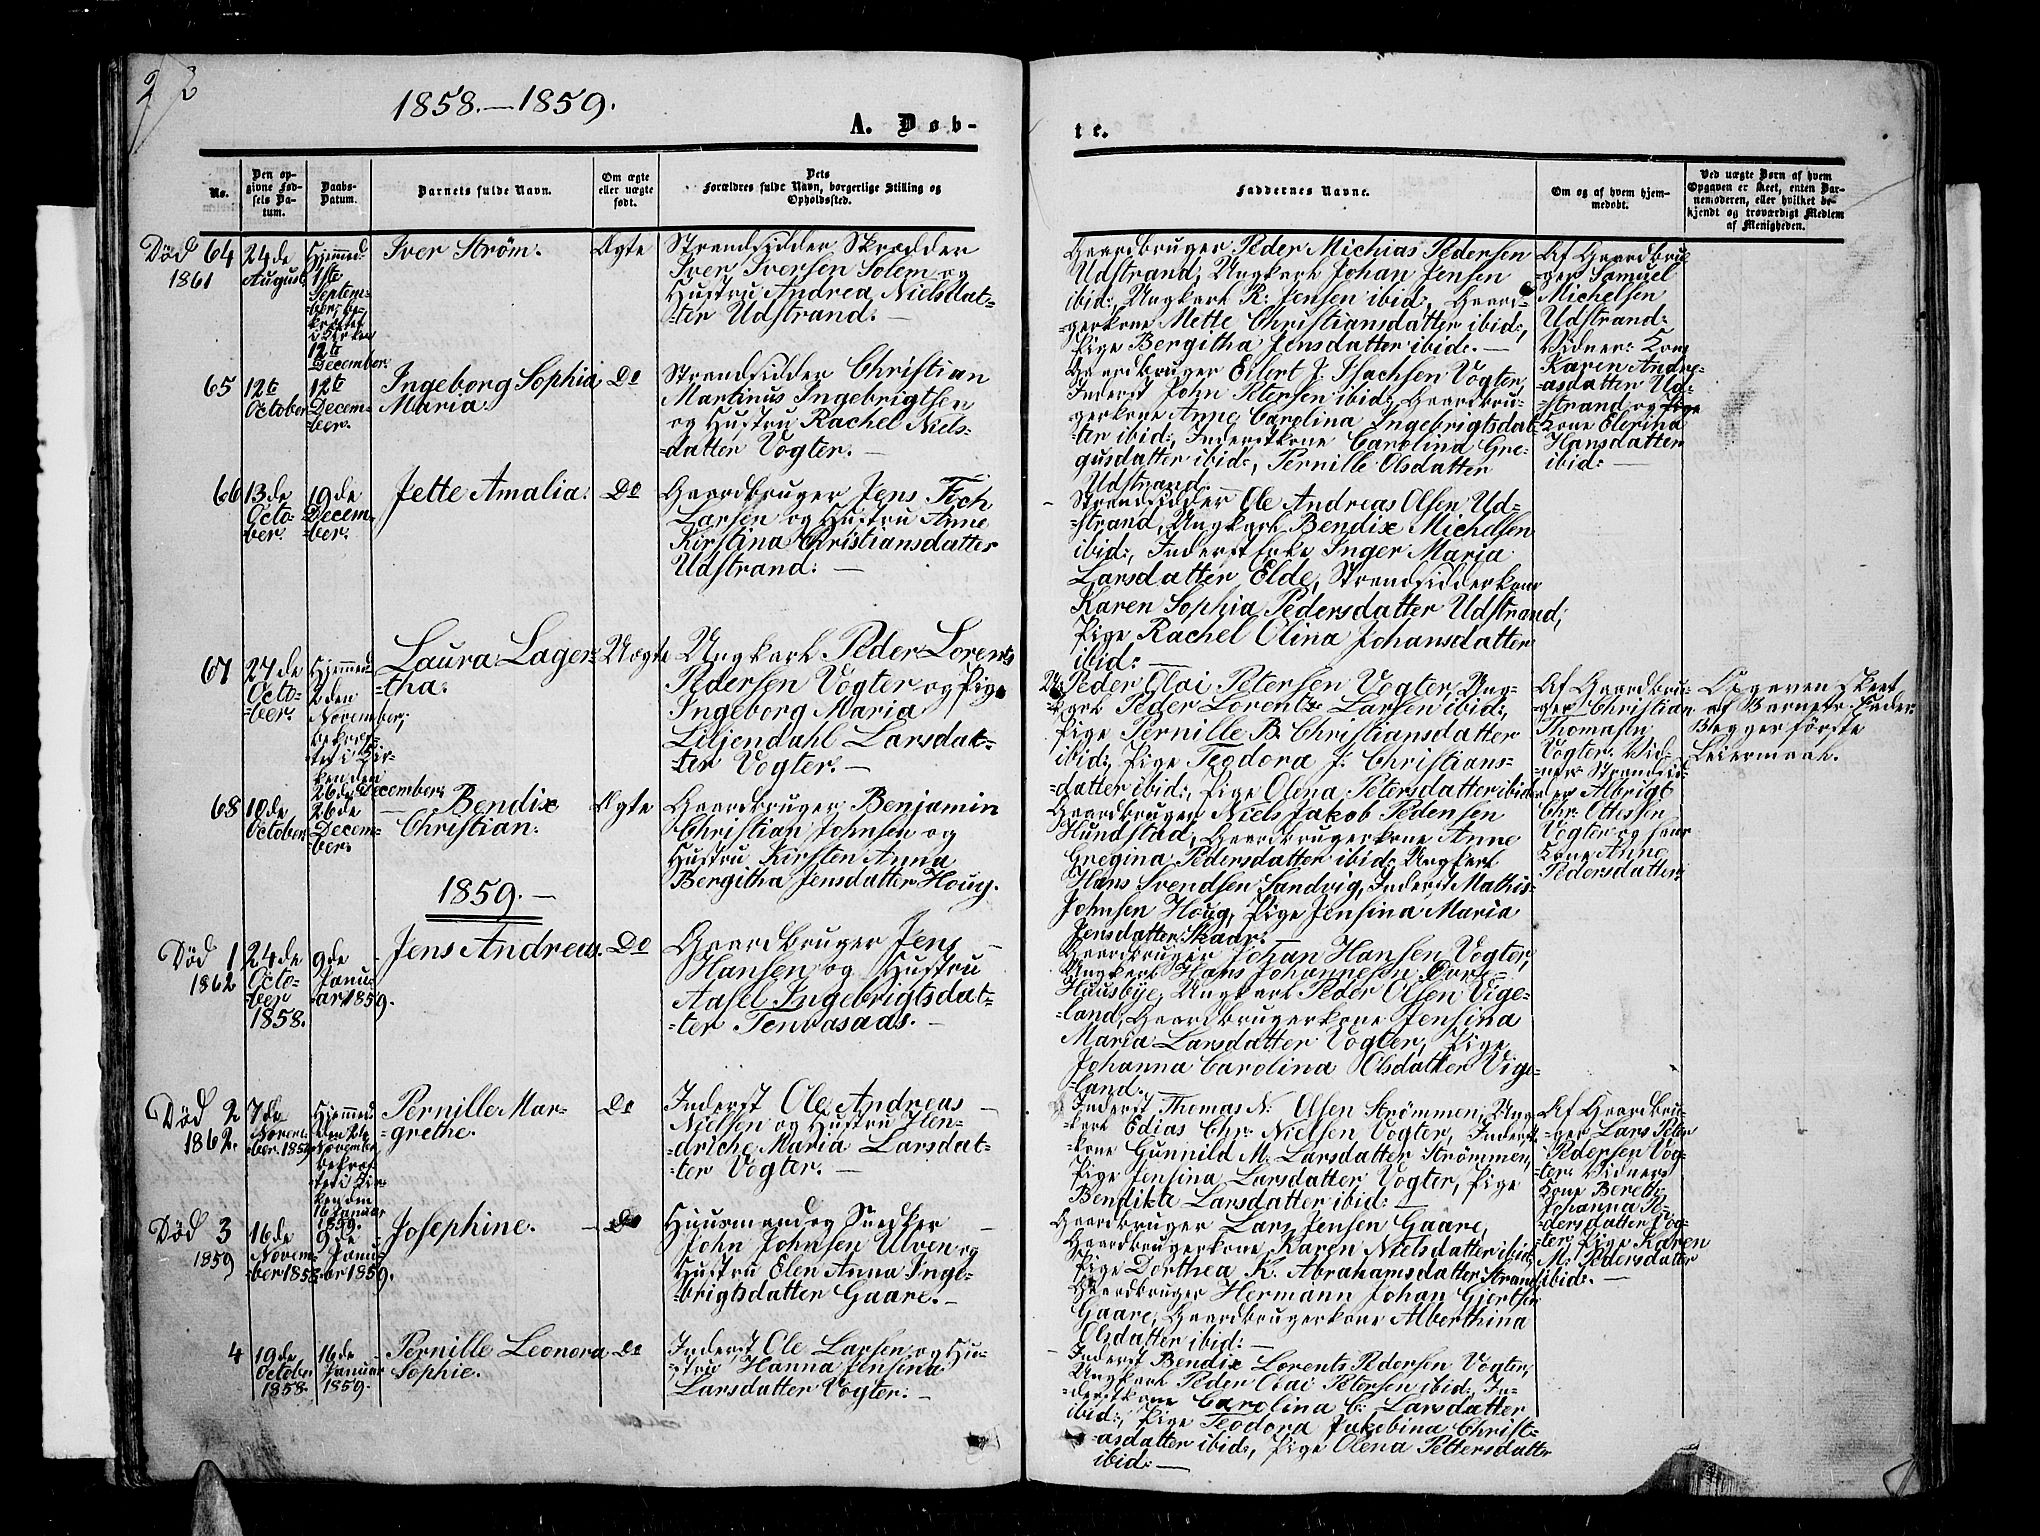 1858.—1859.
A. Døb-
te.
No.
Den op-
givne Fød-
sels Da-
tum.
Daabs-
Datum.
Barnets fulde Navn.
Om ægte
eller uægte
født.
Dets
Forældres fulde Navn, borgerlige Stilling og
Opholdssted.
Faddernes Navne.
Om og af hvem hjem-
medøbt.
Ved uægte Børn af hvem
Opgaven er skeet, enten Bar-
nemoderen, eller hvilket be-
kjendt og troværdigt Medlem
af Menigheden.
Død 64
1861
24de
August
Hjemmed:
1ste
Septem-
-ber, be-
kræftet
i Kirken
12te
December.
Iver Strøm.
Ægte
Strandsidder Skrædder
Iver Iversen Solem og
Hustru Andrea Nielsdat-
-ter Udstrand. —
Gaardbruger Peder Michias Pedersen
Udstrand, Ungkarl Johan Jensen
ibid:, Ungkarl R: Jensen ibid:, Gaard-
-gerkone Mette Christiansdatter ibid:,
Pige Bergitha Jensdatter ibid:. —
Af Gaardbru-
-ger Samuel
Michelsen
Udstrand:
Vidner: Kone
Karen Andre-
-asdatter Ud-
-strand og Pige
Kone Elerina
Hansdatter
ibid: —
65
12te
October
12te
Decem-
-ber.
Ingeborg Sophia
Maria.
Do
Strandsidder Christian
Martinus Ingebrigtsen
og Hustru Rachel Niels-
-datter Vogter. —
Gaardbruger Eilert J. Isachsen Vogter,
Inderst John Petersen ibid:, Gaardbru-
-gerkone Anne Carolina Ingebrigtsdat-
-ter ibid:, Inderstkone Carolina Gre-
gusdatter ibid:, Pernille Olsdatter
Udstrand. —
66
13de
Octo-
-ber.
19de
Decem-
-ber.
Jette Amalia.
Do
Gaardbruger Jens Fich
Larsen og Hustru Anne
Kirstina Christiansdatter
Udstrand: —
Strandsidder Ole Andreas Olsen Ud-
-strand, Ungkarl Bendix Michelsen
ibid:, Inderst Enke Inger Maria
Larsdatter Elde, Strandsidderkone
Karen Sophia Pedersdatter Udstrand,
Pige Rachel Olina Johansdatter
ibid: —
67
27de
Octo-
-ber.
Hjemmed:
2den
November;
bekræf-
-tet i Kir-
-ken den
26de December.
Laura Lager-
-tha.
Uægte
Ungkarl Peder Lorents
Pedersen Vogter og Pige
Ingeborg Maria
Liljendahl Larsdat-
-ter Vogter. —
Peder Olai Petersen Vogter, Ung-
-karl Peder Lorents Larsen ibid:,
Pige Pernille B. Christiansdatter
ibid:, Pige Teodora J: Christians-
-datter ibid:, Pige Olena Petersdatter ibid:
Af Gaardbru-
-ger Christian
Thomasen
Vogter. Vid-
-ner: Strandsid-
-der Albrigt
Chr. Ottesen
Vogter og hans
Kone Anne
Pedersdatter.
Opgaven skeet
af Barnets Fader.
Begges første
Leiermaal.
68
19de
October
26de
Decem-
-ber.
Bendix
Christian.
Ægte
Gaardbruger Benjamin
Christian Johnsen og
Hustru Kirsten Anna
Bergitha Jensdatter Houg.
Gaardbruger Niels Jakob Pedersen
Hundstad, Gaardbrugerkone Anne
Gregina Pedersdatter ibid:, Ungkarl
Hans Svendsen Sandvig, Inderst Mathis
Johnsen Houg, Pige Jensina Maria
Jensdatter Skaar. —
1859. —
Død 1
1862
24de
Octo-
-ber
1858.
9de
Janu-
-ar 1859.
Jens Andreas.
Do
Gaardbruger Jens
Hansen og Hustru
Aasel Ingebrigtsdat-
-ter Tenvasaas. —
Gaardbruger Johan Hansen Vogter,
Ungkarl Hans Johannesen Dorse-
Huusbye, Ungkarl Peder Olsen Vige-
-land, Gaardbrugerkone Jensina
Maria Larsdatter Vogter, Pige
Johanna Carolina Olsdatter Vige-
-land.
Død 2
1862.
7de
Novem-
-ber. 1858
Hjemmed:
November
bekræf-
-tet i Kir-
-ken den
16 Januar
1859.
Pernille Mar-
-grethe.
Do
Inderst Ole Andreas
Nielsen og Hustru Hen-
-driche Maria Larsdat-
-ter Vogter. —
Inderst Thomas N: Olsen Strømmen, Ung-
-karl Edias Chr: Nielsen Vogter, Inderst-
-kone Gunnild M. Larsdatter Strømmen,
Pige Jensina Larsdatter Vogter, Pige
Bendikte Larsdatter ibid: —
Af Gaardbru-
-ger Lars Peter
Pedersen Vog-
-ter. Vidner:
Kone Bereth
Johanna Pe-
-dersdatter Vog-
-ter, Pige Karen
M. Pedersdatter
ibid:. —
Død 3
1859
16de
Novem-
-ber 1858.
9de
Janu-
-ar 1859.
Josephine.
Do
Huusmand og Snedker
John Johnsen Ulven og
Hustru Elen Anna Inge-
-brigtsdatter Gaare. —
Gaardbruger Lars Jensen Gaare,
Gaardbrugerkone Karen Nielsdatter ibid:,
Pige Dorthea K. Abrahamsdatter Strand
Gaardbruger Hermann Johan Gjertsen
Gaare, Gaardbrugerkone Alberthina
Olsdatter ibid: —
4
19de
October
1858.
16de
Januar
1859.
Pernille Leonora
Sophie.
Do
Inderst Ole Larsen og Hu-
-stru Hanna Jensina
Larsdatter Vogter. —
Inderst Bendix Lorents Pedersen Vogter,
Ungkarl Peder Olai Petersen ibid:, In-
-derstkone Carolina C: Larsdatter
ibid:, Pige Teodora Jakobina Christi-
-asdatter ibid:, Pige Olena Pettersdatter
ibid: —